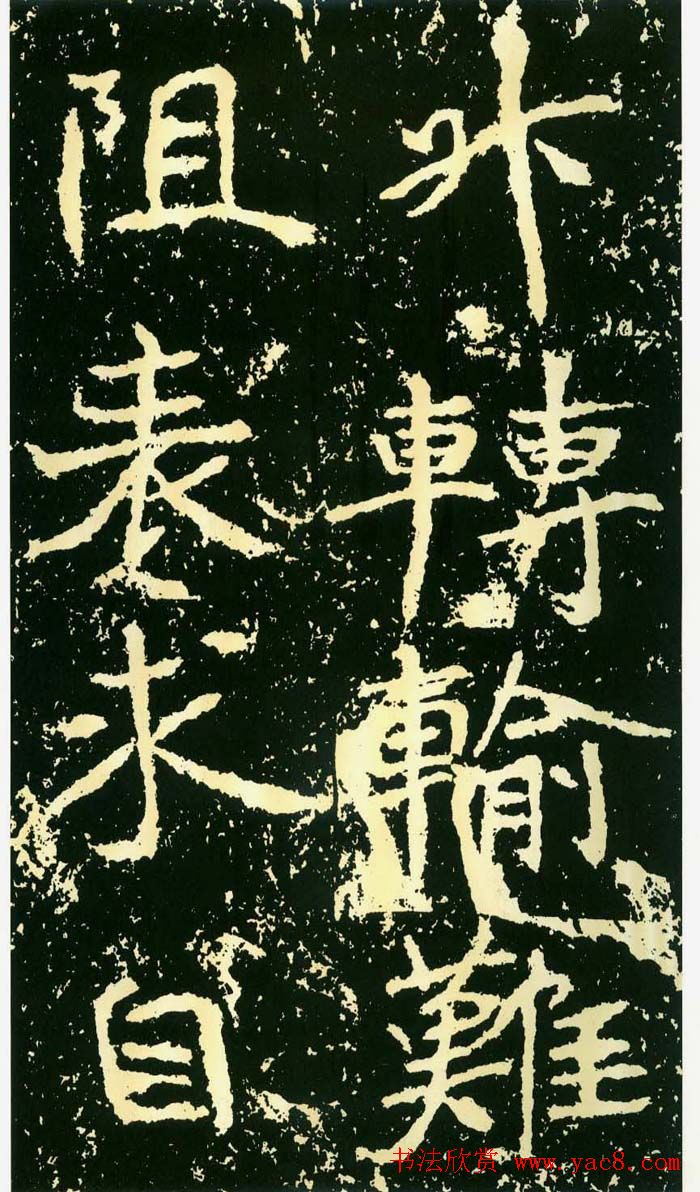 升轉輸難
阻表求自
书法欣赏 www.yac8.com